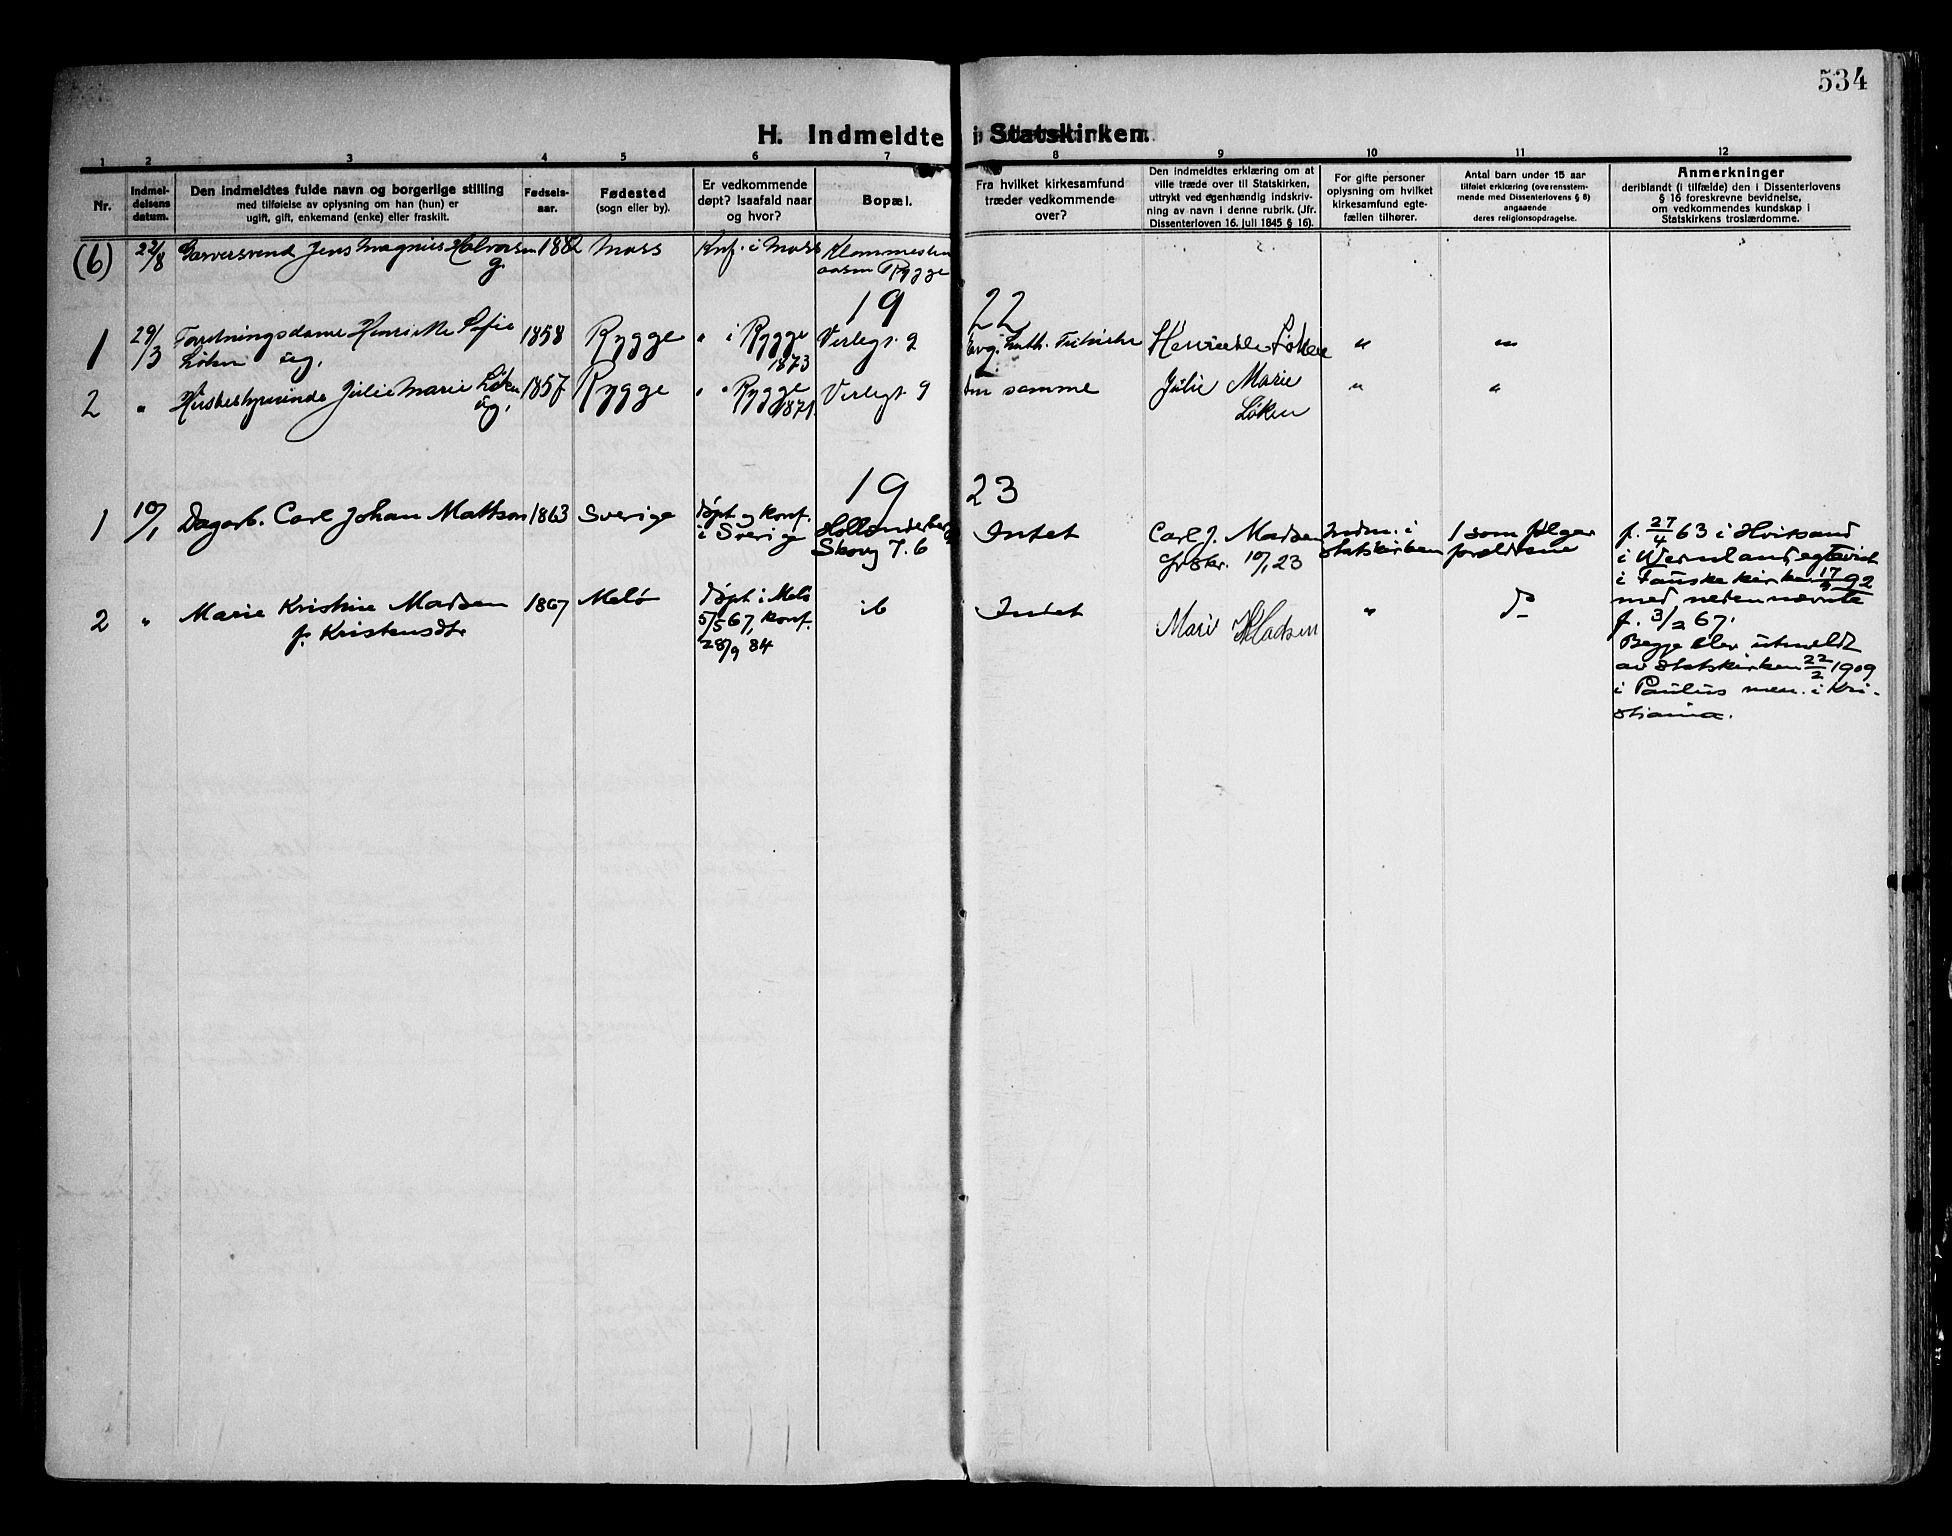 534
H. Indmeldte i Statskirken.
1 2 3 4 5 6 7 8 9 10 11 12
Nr.
Indmel-
delsens
datum.
Den indmeldtes fulde navn og borgerlige stilling
med tilføielse av oplysning om han (hun) er
ugift, gift, enkemand (enke) eller fraskilt.
Fødsels-
aar.
Fødested
(sogn eller by).
Er vedkommende
døpt? Isaafald naar
og hvor?
Bopæl.
Fra hvilket kirkesamfund
træder vedkommende
over?
Den indmeldtes erklæring om at
ville træde over til Statskirken,
uttrykt ved egenhændig indskriv-
ning av navn i denne rubrik. (Jfr.
Dissenterloven 16. juli 1845 § 16).
For gifte personer
oplysning om hvilket
kirkesamfund egte-
fællen tilhører.
Antal barn under 15 aar
tilføiet erklæring (overensstem-
mende med Dissenterlovens § 8)
angaaende
deres religionsopdragelse.
Anmerkninger
deriblandt (i tilfælde) den i Dissenterlovens
§ 16 foreskrevne bevidnelse,
om vedkommendes kundskap i
Statskirkens troslærdomme.
(6) 22/8 Garversvend Jens Magnus Halvorsen 1882 Moss Knf. i Moss
g.
Rygge
19 22
1 29/3 Forretningsdame Henriette Sofie 1858 Rygge " i Rygge Verlegt. 9 Evg. Luth. Frikirke Henriette Løken " "
Løken ug. 1873
2 " Husbestyrerinde Julie Marie Løken 1857 Rygge " " Rygge Verlegt. 9 den samme Julie Marie " "
ug. 1871 Løken
19 23
1 10/1 Dagarb. Carl Johan Mattson 1863 Sverige døpt og konf. Intet Carl J. Madsen Indm. i 1 som følger f. 27/4 63 i
i Sverige Skovg 7. b 10/1 23 Statskirken forældrene
i Wermland, egteviet
i Fauske kirke 92
med nedennævnte
2 " Marie Kristine Madsen 1867 Melø døpt i Melø ib Intet Mari K Madsen " do
f. Kristensdtr 5/5 67, konf. f. 3/2 67.
28/9 84
Begge blev utmeldt
av Statskirken 22/2 1909
i Paulus men. i Kri-
stiania.